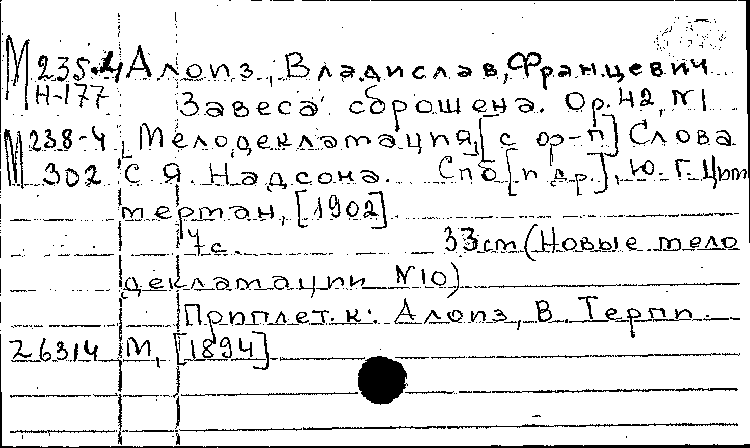 М 235-4 Алоиз, Владислав, Францевич
Н-177 Завеса сброшена. Op. 42, N1
М 238-4 Мелодекламация, [с ор-п] Слова
302 С. Я. Надсона. Спб [и др.], Ю. Г. Цим
мерман, [1902].
7с. 33см (Новые мело
декламации N10)
Приплет. к: Алоиз, В. Терпи.
26314 М, [1894]